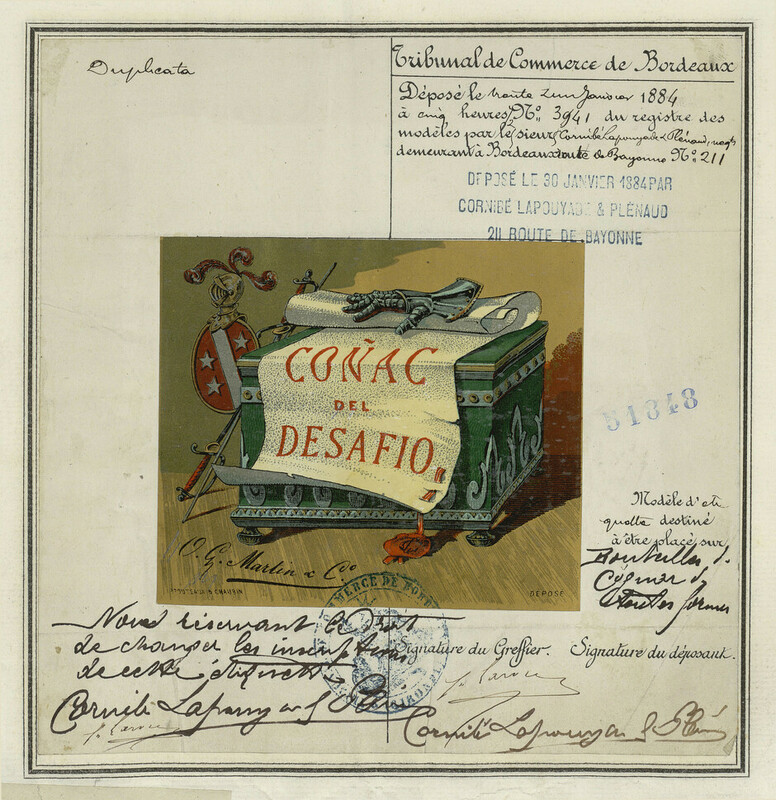 Duplicata
Tribunal de Commerce de Bordeaux
Déposé le trente Janvier 1884
à cinq heures, No. 3941 du registre des
modèles par les sieurs Cornibé Lapouyade & Plénaud, negts
demeurant à Bordeaux route de Bayonne No. 211
DEPOSÉ LE 30 JANVIER 1884 PAR
CORNIBÉ LAPOUYADE & PLÉNAUD
211 ROUTE DE BAYONNE
COÑAC
DEL
DESAFIO
51848
Modèle d'éti
quette destiné
à être placé sur
Bouteilles de
Cognac de
toutes formes
O. G. Martin & Co.
DEPOSE
COMMERCE DE BORD
Nous réservant le droit
de changer les inscriptions
de cette étiquette
Signature du Greffier. Signature du déposant.
Cornibé Lapouyade & Plénaud
Cornibé Lapouyade & Plénaud